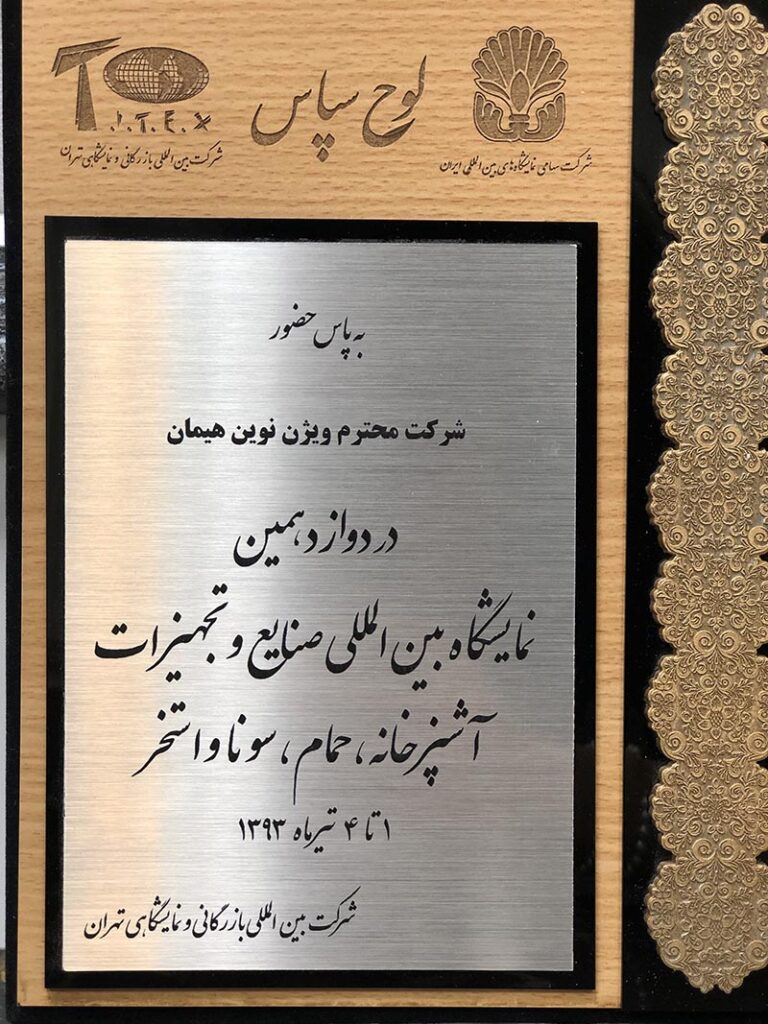 لوح سپاس
شرکت سهامی نمایشگاه‌های بین‌المللی ایران
T.I.T.E.X
شرکت بین‌المللی بازرگانی و نمایشگاهی تهران
به پاس حضور
شرکت محترم ویژن نوین هیمان
در دوازدهمین
نمایشگاه بین‌المللی صنایع و تجهیزات
آشپزخانه، حمام، سونا و استخر
۱ تا ۴ تیرماه ۱۳۹۳
شرکت بین‌المللی بازرگانی و نمایشگاهی تهران